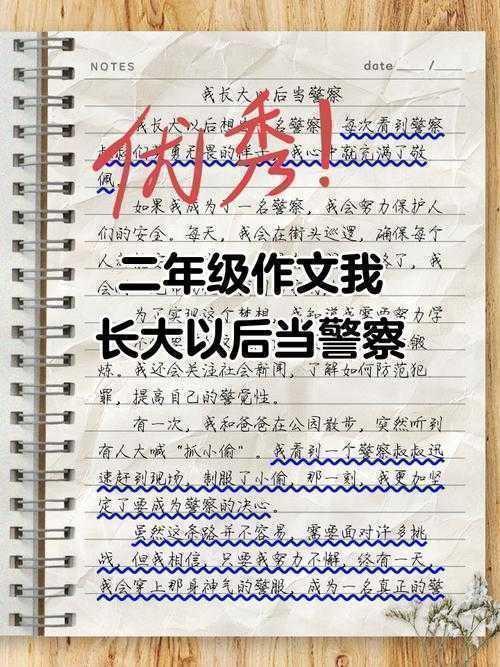 NOTES date / 
我长大以后当警察
我长大以后想 名警察 每次看到警察
叔叔们 勇无畏的样子，我心中就充满了敬
佩。
优秀！
如果我成为了一名警察，我会努力保护人
们的安全。每天，我会在街头巡逻，确保每个
人 了，我
会
二年级作文我
为了实现这个梦想，我知道我需要努力学
长大以后当警察
锻
炼。我还会关注社会新闻，了解如何防范犯
罪，提高自己的警觉性。
有一次，我和爸爸在公园散步，突然听到
有人大喊“抓小偷”。我看到一个警察叔叔迅
速赶到现场，制服了小偷，那一刻，我更加坚
定了要成为警察的决心。
虽然这条路并不容易，需要面对许多挑
战，但我相信，只要我努力不懈，终有一天，
我会穿上那身神气的警服，成为一名真正的警